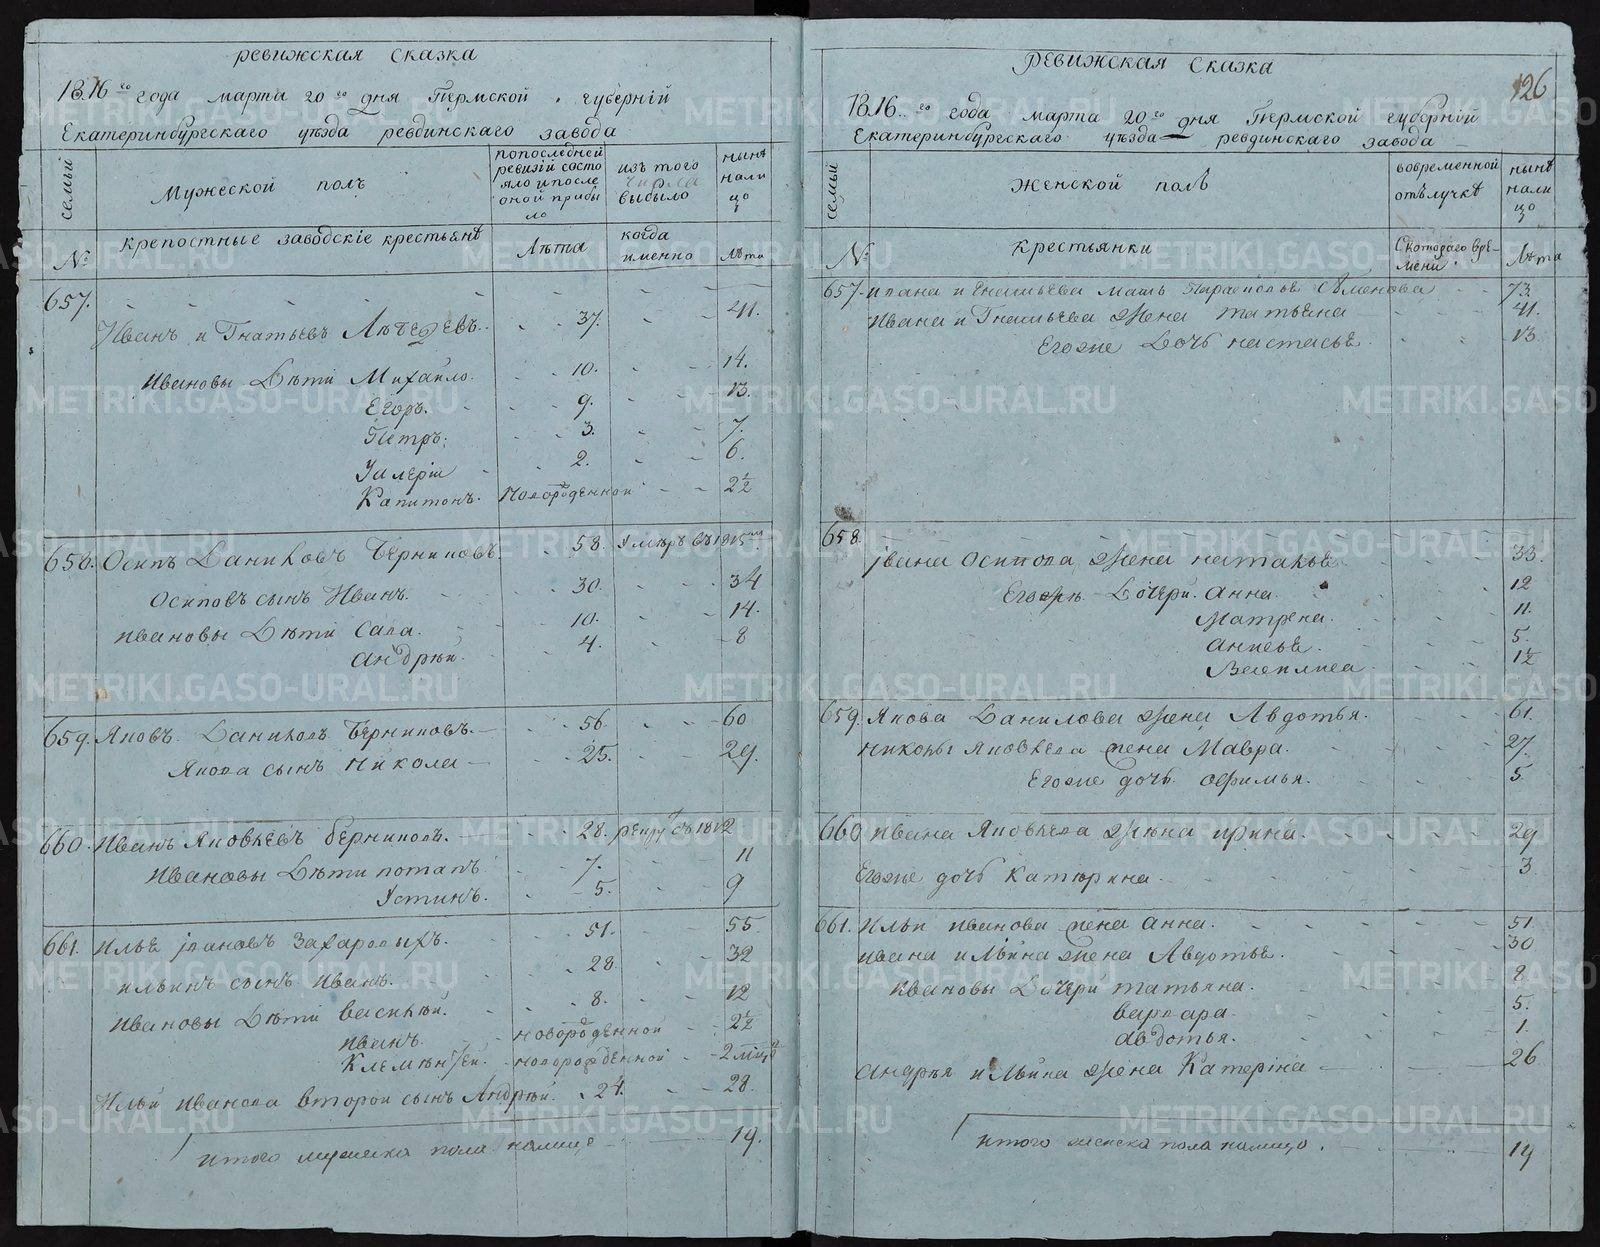 ревижская сказка
1816 го года марта 20 го дня Пермской губерній
Екатеринбургскаго уѣзда ревдинскаго завода
семьи
Мужеской полъ
попоследней
ревизій состо
яло ипосле
оной прибы
ло
изъ того
числа
выбыло
нынѣ
нали
цо
№
крепостные заводскіе крестьянѣ
Лѣта
когда
именно
лѣта
657.
Иванъ Игнатьевъ 37. 41.
Ивановы дѣти Михайло. 10. 14.
Егоръ. 9. 13.
Петръ. 3. 7.
Валерій 2. 6.
Капитонъ. Новорожденной 2½
658. Осипъ Даниловъ Берниковъ 58. Умѣръ въ 1815 мъ
Осиповъ сынъ Иванъ. 30. 34
Ивановы дѣти Сава. 10. 14.
Андрѣй. 4. 8
659. Яковъ Даниловъ Берниковъ. 56. 60
Якова сынъ Никола 25. 29.
660. Иванъ Яковлевъ Берниковъ. 28. рекру съ 1812
Ивановы дѣти потапъ 7. 11
Устинъ. 5. 9
661. Илья івановъ Захаровыхъ. 51. 55.
ильинъ сынъ Иванъ. 28. 32
Ивановы дѣти василѣй. 8. 12
иванъ. новорожденной 2½
Клементей. новорожденной 2 місц
Ильи иванова второй сынъ Андрѣй. 24. 28.
итого мужеска пола налицо 19.
126
ревижская сказка
1816 го года марта 20 го дня Пермской губерній
Екатеринбургскаго уѣзда ревдинскаго завода
семьи
Женской полъ
вовременной
отълучкѣ
нынѣ
нали
цо
№
крестьянки
Скотораго вре-
мени
Лѣта
657. ивана игнатьева мать Парасковья Семенова 73
Ивана игнатьева жена татьяна 41.
Егоже дочь настасья. 13
658.
івана осипова жена наталья 33.
Егожъ дочери. анна. 12
матрена. 11.
анисья. 5.
Василиса 1½
659. Якова Данилова жена Авдотья. 61.
николы яковлева жена Мавра. 27.
Егоже дочь офимья. 5
660 ивана Яковлева жена ирина. 29
Егоже дочь катерина. 3
661. Ильи иванова жена анна. 51.
ивана ильина жена Авдотья. 30
ивановы дочери татьяна. 8.
варвара. 5.
авдотья. 1.
андрея ильина жена Катеріна 26
итого женска пола налицо. 19
METRIKI.GASO-URAL.RU